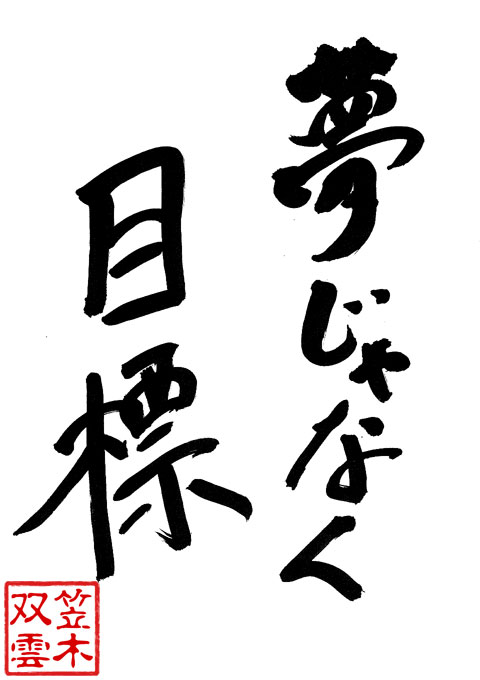 夢じゃなく
目標
笠木
双雲